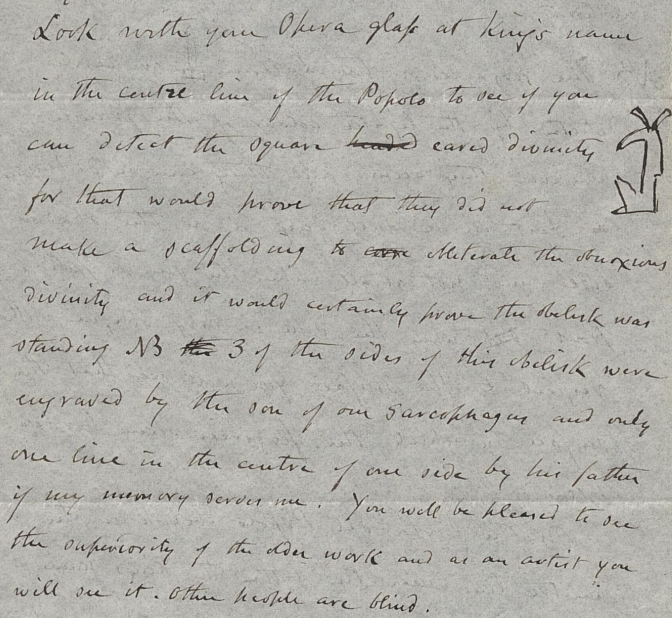 Look with your Opera glass at King's name
in the centre line of the Popolo to see if you
can detect the square headed eared divinity
for that would prove that they did not
make a scaffolding to obliterate the obnoxious
divinity and it would certainly prove the obelisk was
standing NB the 3 of the sides of this obelisk were
engraved by the son of our Sarcophagus and only
one line in the centre of one side by his father
if my memory serves me. You will be pleased to see
the superiority of the older work and as an artist you
will see it. Other people are blind.